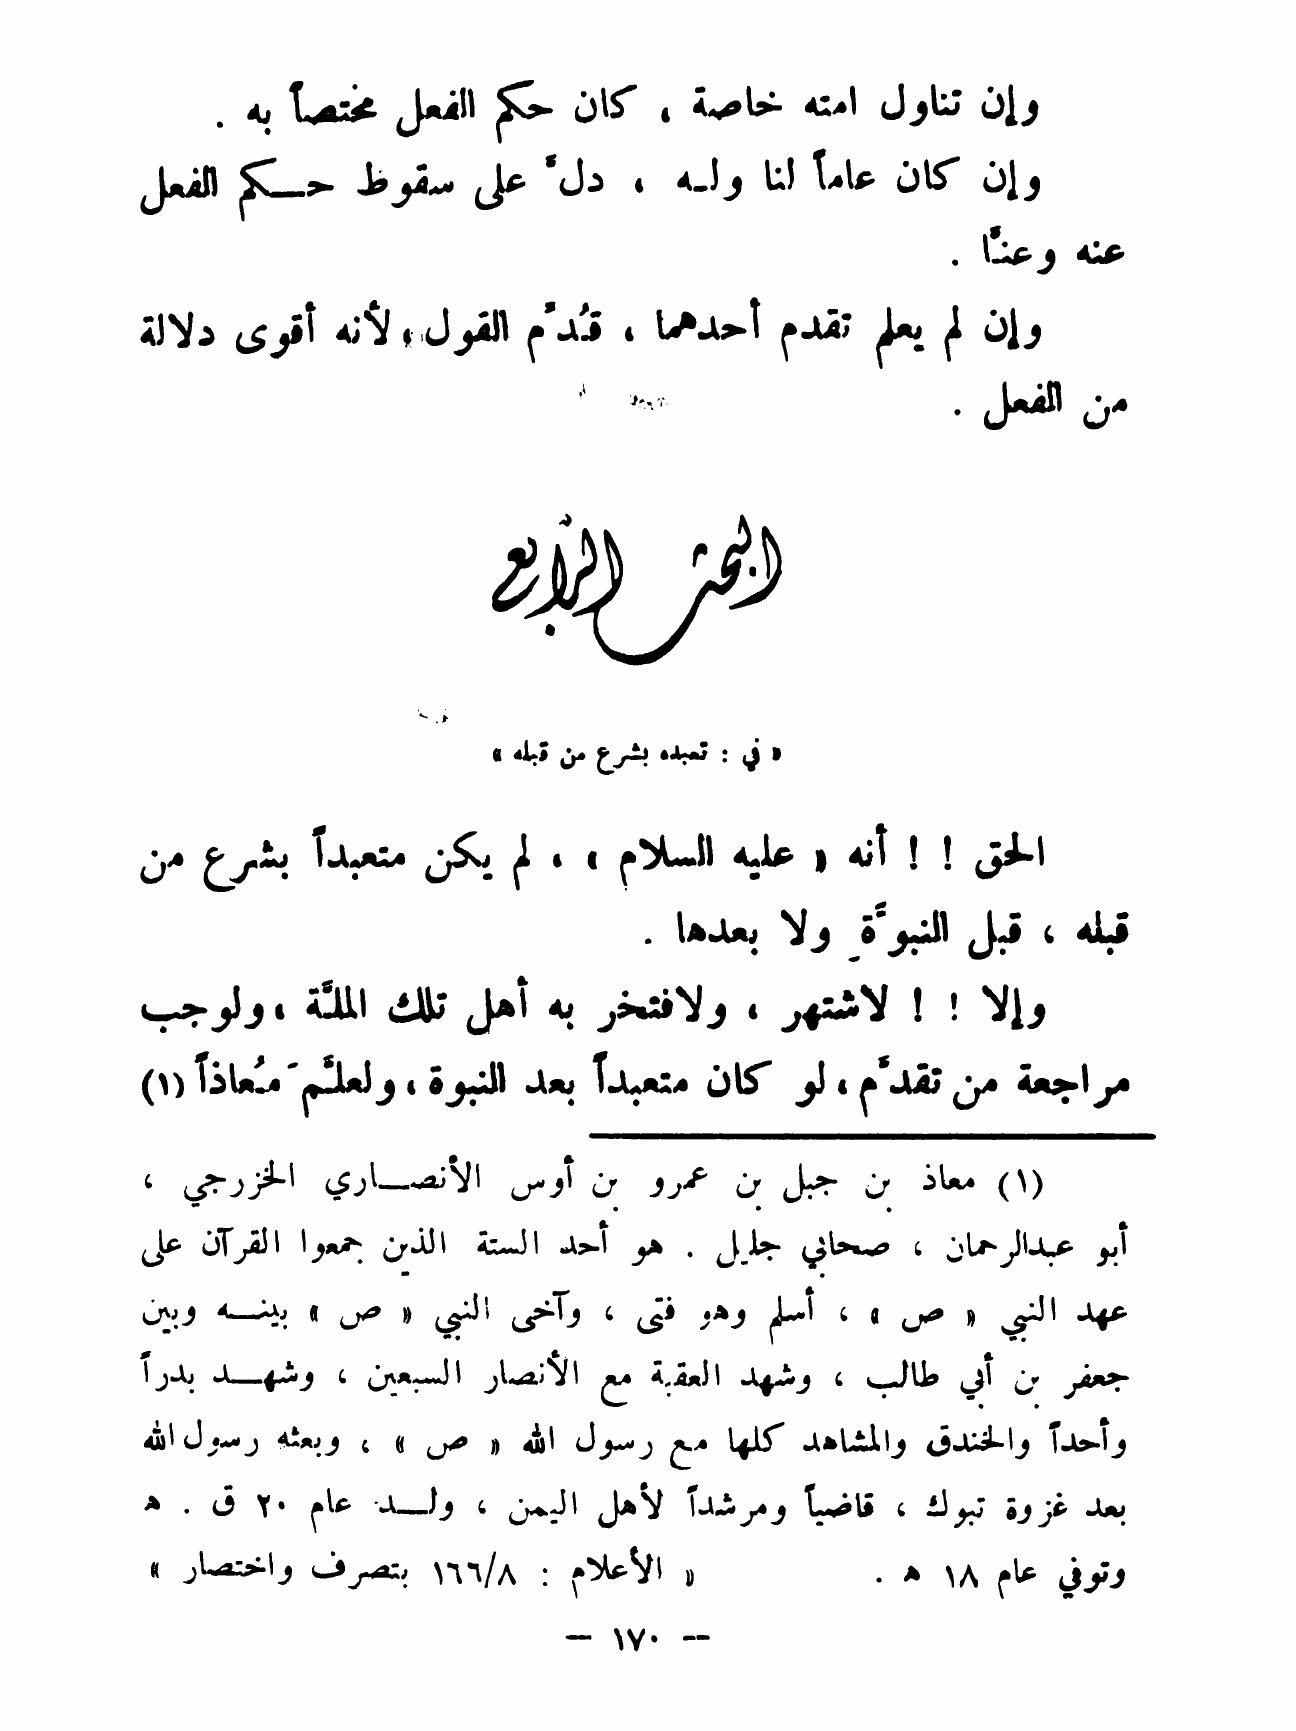 وإن تناول امته خاصة ، كان حكم الفعل مختصاً به .
وإن كان عاماً لنا ولـه ، دلَّ على سقوط حـكم الفعل
عنه وعنَّا .
وإن لم يعلم تقدم أحدهما ، قُدِّم القول، لأنه أقوى دلالة
من الفعل .
البحث الرابع
« في : تعبده بشرع من قبله »
الحق ! ! أنه « عليه السلام » ، لم يكن متعبداً بشرع من
قبله ، قبل النبوَّةِ ولا بعدها .
وإلا ! ! لاشتهر ، ولافتخر به أهل تلك الملَّة ، ولوجب
مراجعة من تقدَّم ، لو كان متعبداً بعد النبوة ، ولعلَّم َ مُعاذاً (١)
(١) معاذ بن جبل بن عمرو بن أوس الأنصـاري الخزرجي ،
أبو عبدالرحمان ، صحابي جليل . هو أحد الستة الذين جمعوا القرآن على
عهد النبي « ص » ، أسلم وهو فتى ، وآخى النبي « ص » بينـه وبين
جعفر بن أبي طالب ، وشهد العقبة مع الأنصار السبعين ، وشهـد بدراً
وأحداً والخندق والمشاهد كلها مع رسول الله « ص » ، وبعثه رسول الله
بعد غزوة تبوك ، قاضياً ومرشداً لأهل اليمن ، ولـد عام ٢٠ ق . ه
وتوفي عام ١٨ ه . « الأعلام : ١٦٦/٨ بتصرف واختصار »
— ١٧٠ —